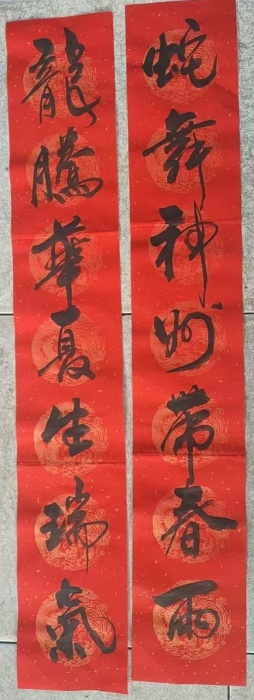 蛇舞神州带春雨
龍騰華夏生瑞氣